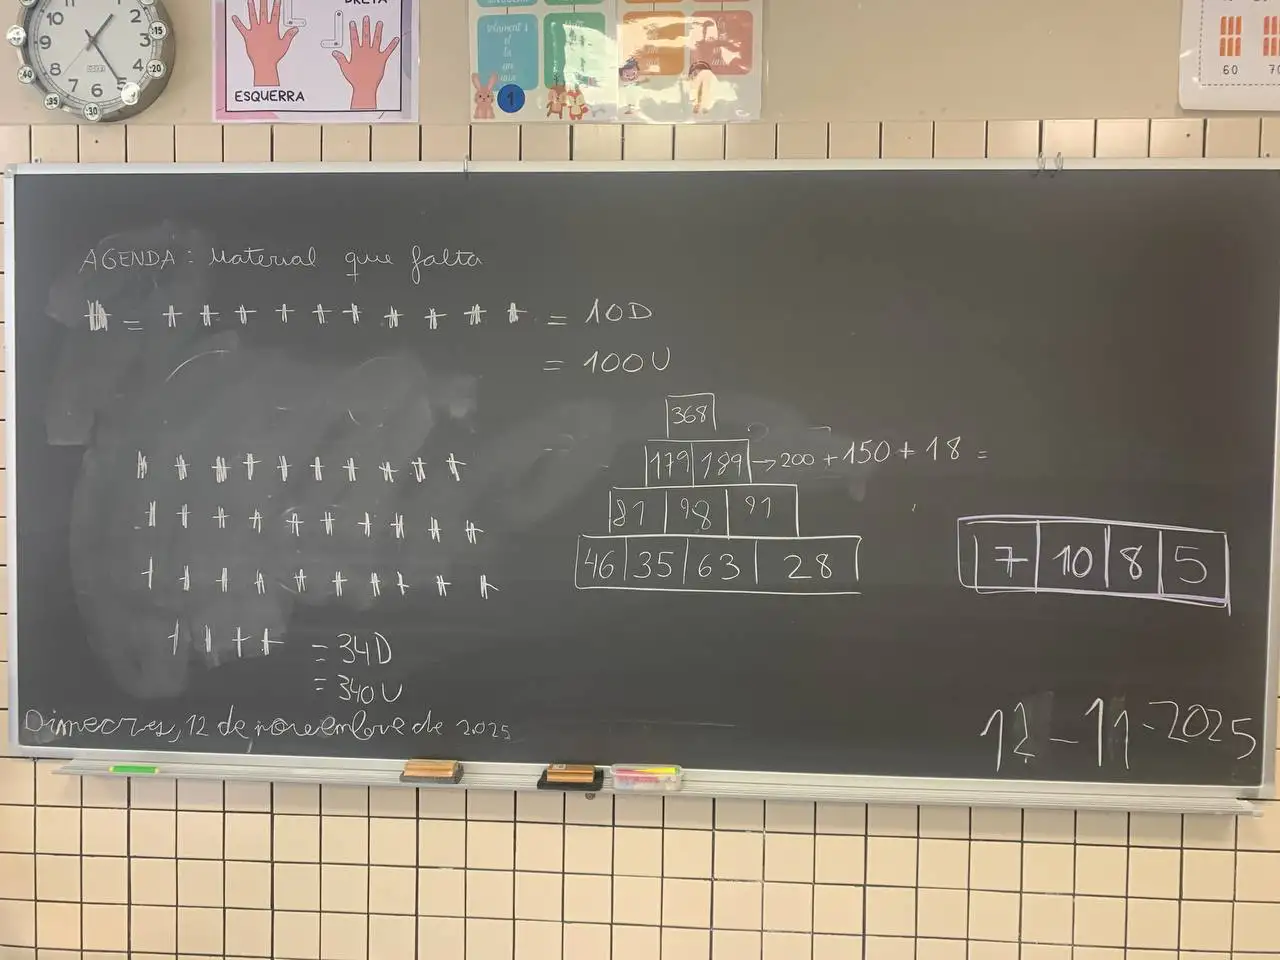 12
1
2
3
4
5
6
7
8
9
10
15
20
30
35
40
DRETA
ESQUERRA
1
60
70
AGENDA: Material que falta
= = 10D
= 100U
368
179 189 → 200 + 150 + 18 =
81 98 91
46 35 63 28
7 10 8 5
= 34D
= 340U
Dimecres, 12 de novembre de 2025
12-11-2025